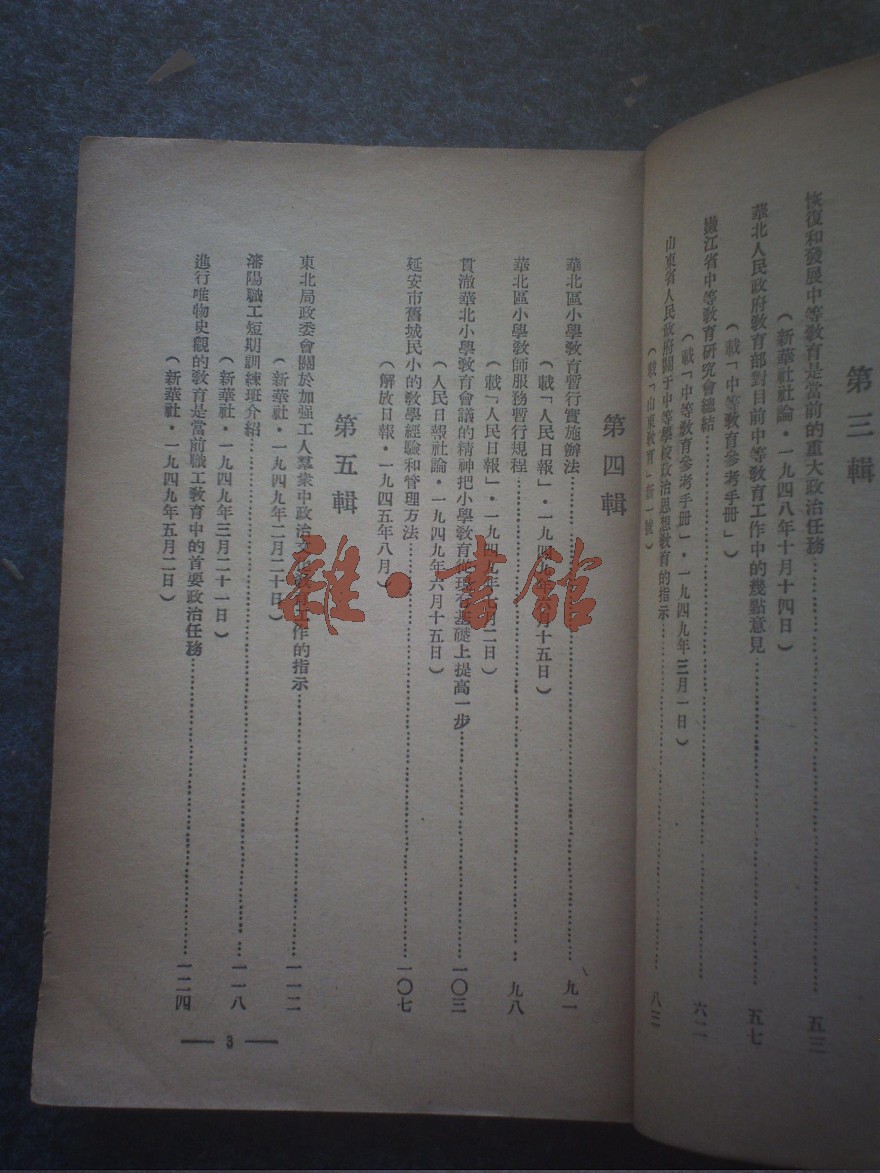 第三輯
恢復和發展中等教育是當前的重大政治任務……五三
（新華社社論・一九四八年十月十四日）
華北人民政府教育部對目前中等教育工作中的幾點意見……五七
（載「中等教育參考手册」）
嫩江省中等教育研究會總結……六二
（載「中等教育參考手册」・一九四九年三月一日）
山東省人民政府關于中等學校政治思想教育的指示……八三
（載「山東教育」新一號）
第四輯
華北區小學教育暫行實施辦法……九一
（載「人民日報」・一九四九年 月十五日）
華北區小學教師服務暫行規程……九八
（載「人民日報」・一九四九年 月二日）
貫澈華北小學教育會議的精神把小學教育 現 基礎上提高一步……一〇三
（人民日報社論・一九四九年六月十五日）
延安市舊城民小的教學經驗和管理方法……一〇七
（解放日報・一九四五年八月）
第五輯
東北局政委會關於加强工人羣衆中政治文 工作的指示……一一二
（新華社・一九四九年二月二十日）
瀋陽職工短期訓練班介紹……一一八
（新華社・一九四九年三月二十一日）
進行唯物史觀的教育是當前職工教育中的首要政治任務……一二四
（新華社・一九四九年五月二日）
— 3 —
雜・書館